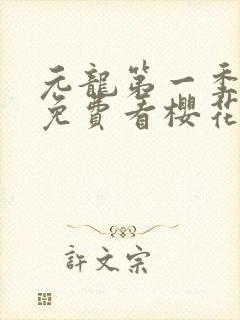 元龍第一季
免費看櫻花
許文宗